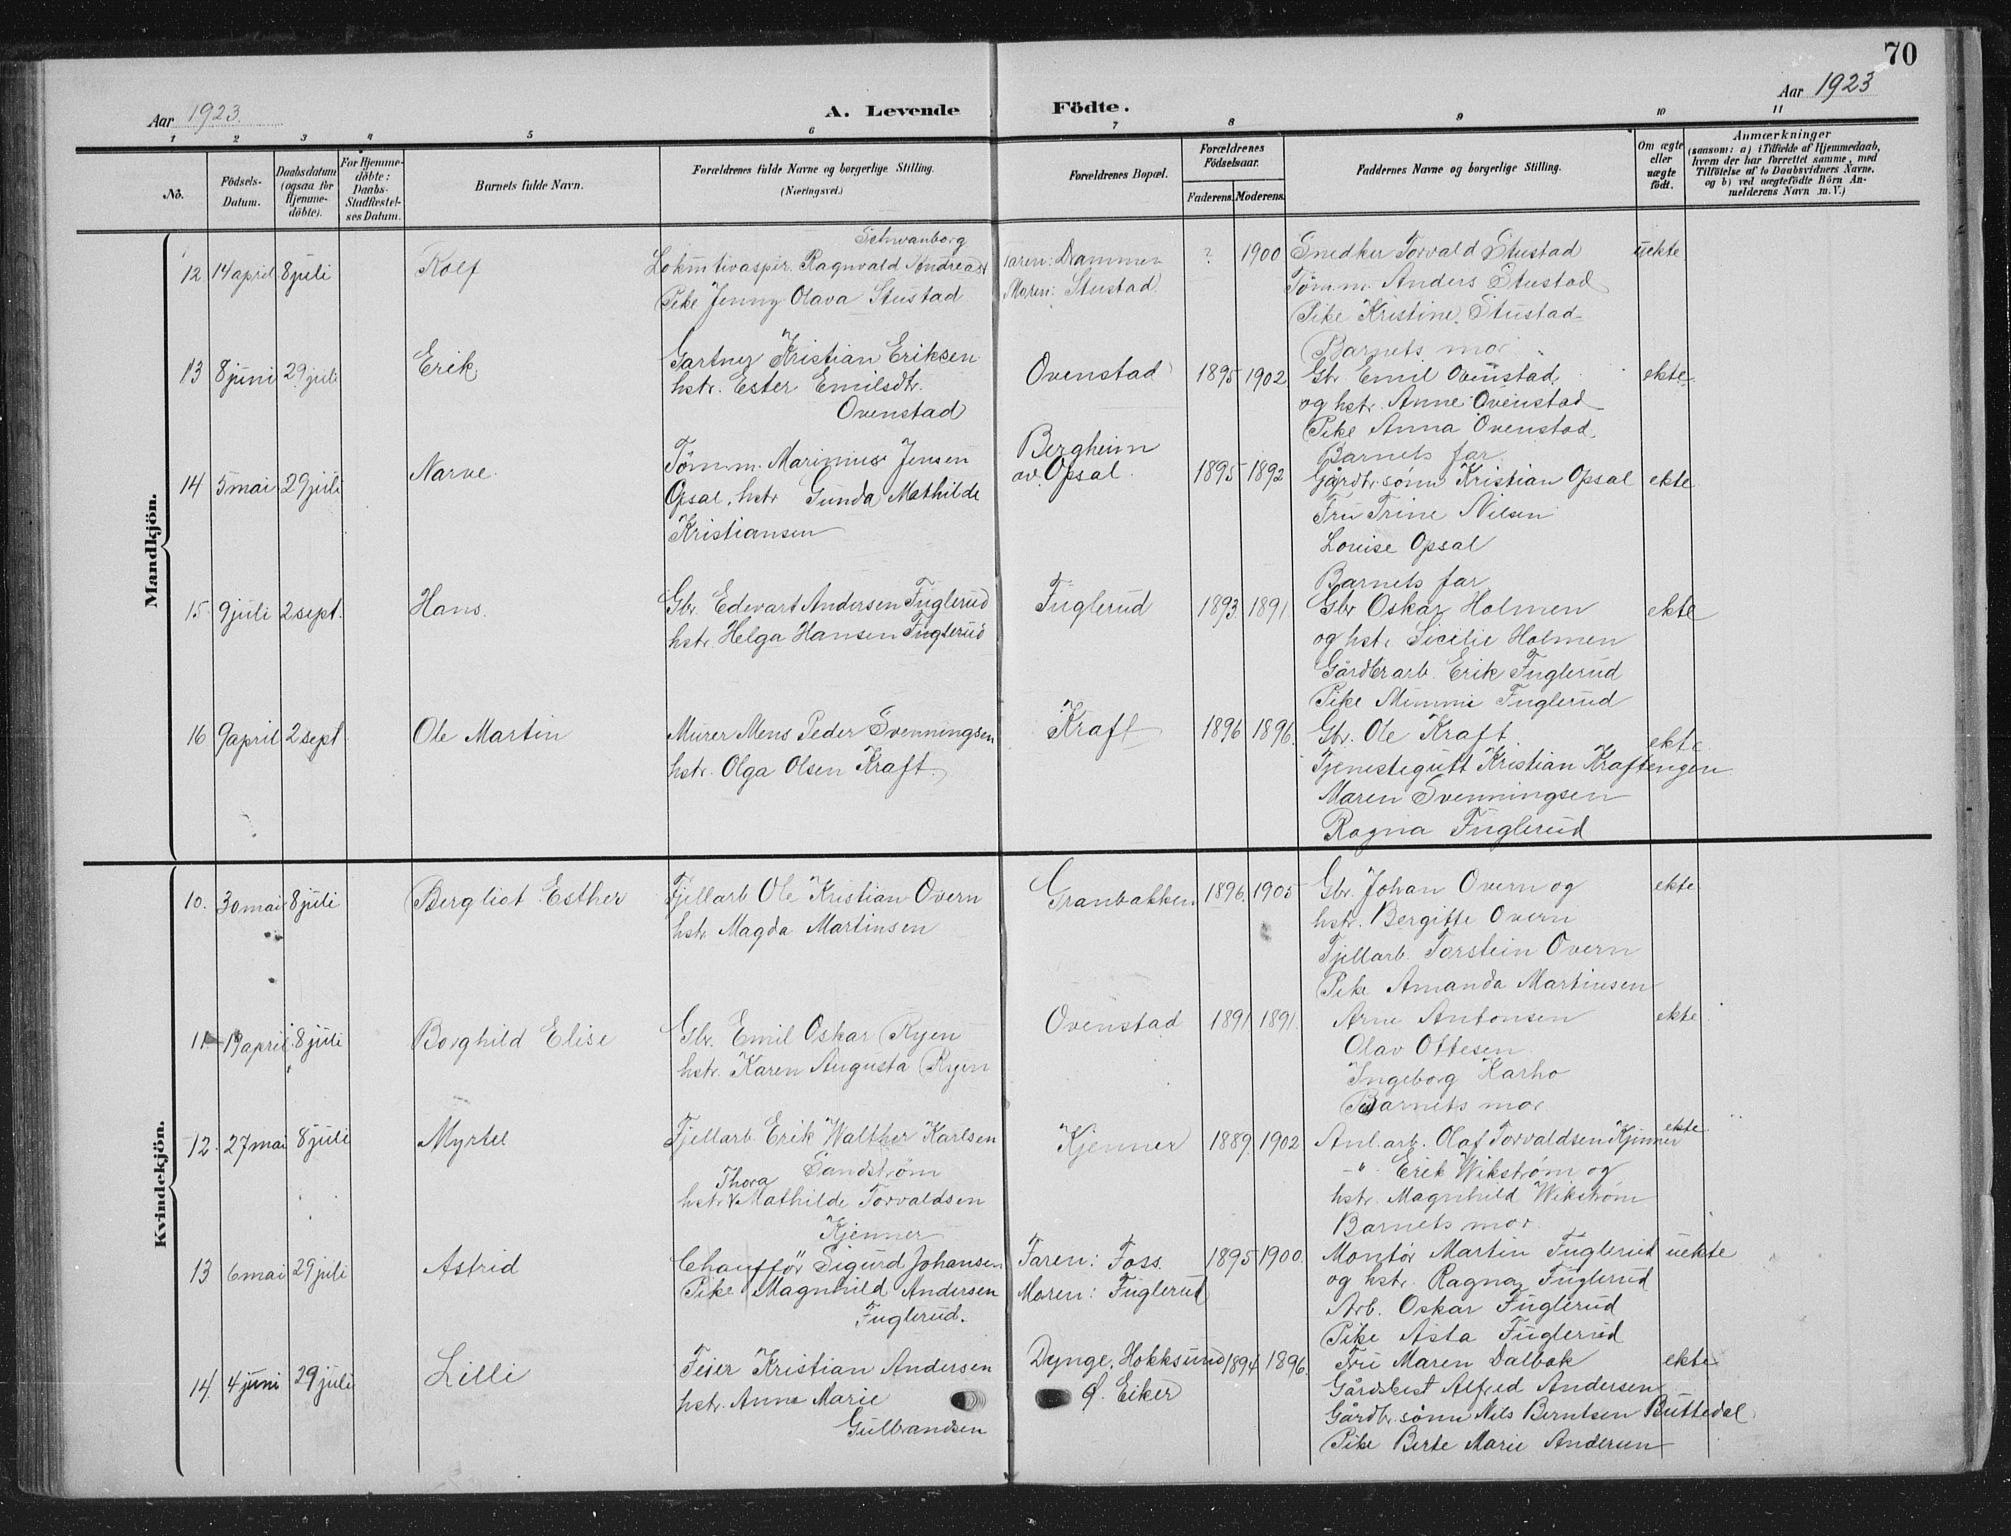 70
Aar 1923.
A. Levende Födte.
Aar 1923
1 2 3 4 5 6 7 8 9 10 11
No.
Födsels-Datum.
Daabsdatum (ogsaa for Hjemme-döbte).
For Hjemme-döbte: Daabs-Stadfæstel-ses Datum.
Barnets fulde Navn.
Forældrenes fulde Navne og borgerlige Stilling. (Næringsvei.)
Forældrenes Bopæl.
Forældrenes Födselsaar.
Faderens. Moderens.
Faddernes Navne og borgerlige Stilling.
Om ægte eller uægte födt.
Anmærkninger
(saasom: a) i Tilfælde af Hjemmedaab, hvem der har forrettet samme, med Tilföielse af to Daabsvidners Navne. og b) ved uægtefödte Börn An-melderens Navn m. V.)
Mandkjön.
12 14 april 8 juli Rolf
Schwanborg
Lokmtivaspir. Ragnvald Andreas
Pike Jenny Olava Stustad
Faren: Drammen
Moren: Stustad.
? 1900
Snedker Torvald Stustad
Tømm. Anders Stustad
Pike Kristine Stustad
Barnets mor
uekte
13 8 juni 29 juli Erik
Gartner Kristian Eriksen
hstr. Ester Emilsdtr.
Ovenstad
Ovenstad 1895 1902
Gbr. Emil Ovenstad,
og hstr. Anne Ovenstad
Pike Anna Ovenstad
Barnets far.
ekte
14 5 mai 29 juli Narve.
Tømm. Marinius Jensen
Opsal, hstr Gunda Mathilde
Kristiansen
Bergheim
av. Opsal. 1895 1892
Gårdbr.sønn Kristian Opsal
Fru Trine Nilsen
Louise Opsal
Barnets far
ekte
15 9 juli 2 sept. Hans.
Gbr. Edevart Andersen Fuglerud
hstr. Helga Hansen Fuglerud
Fuglerud 1893. 1891.
Gbr Oskar Holmen
og hst. Sicilie Holmen
Gårdbrarb. Erik Fuglerud
Pike Mimmi Fuglerud
ekte
16 9 april 2 sept Ole Martin
Murer Mens Peder Svenningsen
hstr. Olga Olsen Kraft.
Kraft 1896 1896.
Gbr. Ole Kraft.
Tjenestegutt Kristian Kraftengen
Maren Svenningsen
Ragna Fuglerud
ekte
Kvindekjön.
10. 30 mai 8 juli Bergliot Esther
Fjellarb Ole Kristian Overn
hstr Magda Martinsen
Granbakken 1896. 1905
Gbr. Johan Overn og
hstr. Bergitte Overn
Fjellarb. Torstein Overn
Pike Amanda Martinsen
ekte
11 19 april 8 juli Borghild Elise
Gbr. Emil Oskar Ryen
hstr. Karen Augusta Ryen
Ovenstad 1891 1891.
Arne Antonsen
Olav Ottesen
Ingeborg Karho
Barnets mor
ekte
12. 27 mai 8 juli Myrtel
Fjellarb. Erik Walther Karlsen
Sandstrøm
Thora
hstr. Mathilde Torvaldsen
Kjenner
Kjenner 1889. 1902
Anl.arb. Olaf Torvaldsen Kjenner
-"- Erik Wikstrøm og
hstr. Magnhild Wikstrøm
Barnets mor
ekte
13 6 mai 29 juli Astrid
Chauffør Sigurd Johansen
Pike Magnhild Andersen
Fuglerud.
Faren: Foss.
Moren: Fuglerud
1895 1900.
Montør Martin Fuglerud
og hstr. Ragna Fuglerud
Arb. Oskar Fuglerud
Pike Asta Fuglerud
uekte
14 4 juni 29 juli Lilli
Feier Kristian Andersen
hstr. Anna Marie
Gulbrandsen
Dynge, Hokksund
Ø. Eiker
1894 1896.
Fru Maren Dalbak
Gårdsbest Alfred Andersen
Gårdbr.sønn Nils Berntsen Buttedal
Pike Berte Marie Andersen
ekte